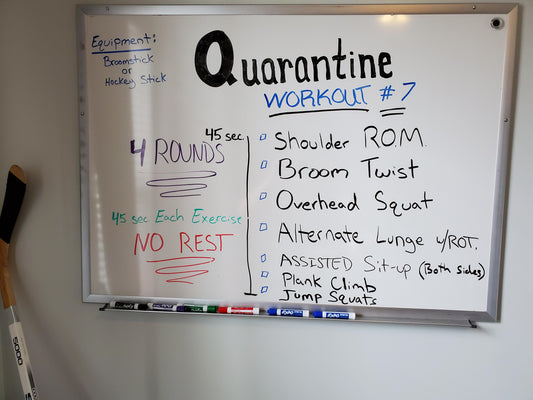 Equipment:
Broomstick
or
Hockey Stick
Quarantine
WORKOUT #7
45 sec.
4 ROUNDS
45 sec Each Exercise
NO REST
Shoulder R.O.M.
Broom Twist
Overhead Squat
Alternate Lunge w/ROT.
ASSISTED Sit-up (Both sides)
Plank Climb
Jump Squats
EXPO
EXPO
5000